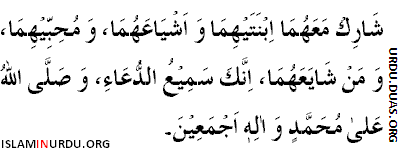 شَارِكْ مَعَهُمَا اِبْنَتَيْهِمَا وَ اَشْيَاعَهُمَا، وَ مُحِبِّيْهِمَا،
وَ مَنْ شَايَعَهُمَا، اِنَّكَ سَمِيْعُ الدُّعَاءِ، وَ صَلَّى اللّٰهُ
عَلىٰ مُحَمَّدٍ وَ اٰلِهٖ اَجْمَعِيْنَ۔
ISLAMINURDU.ORG
URDU.DUAS.ORG